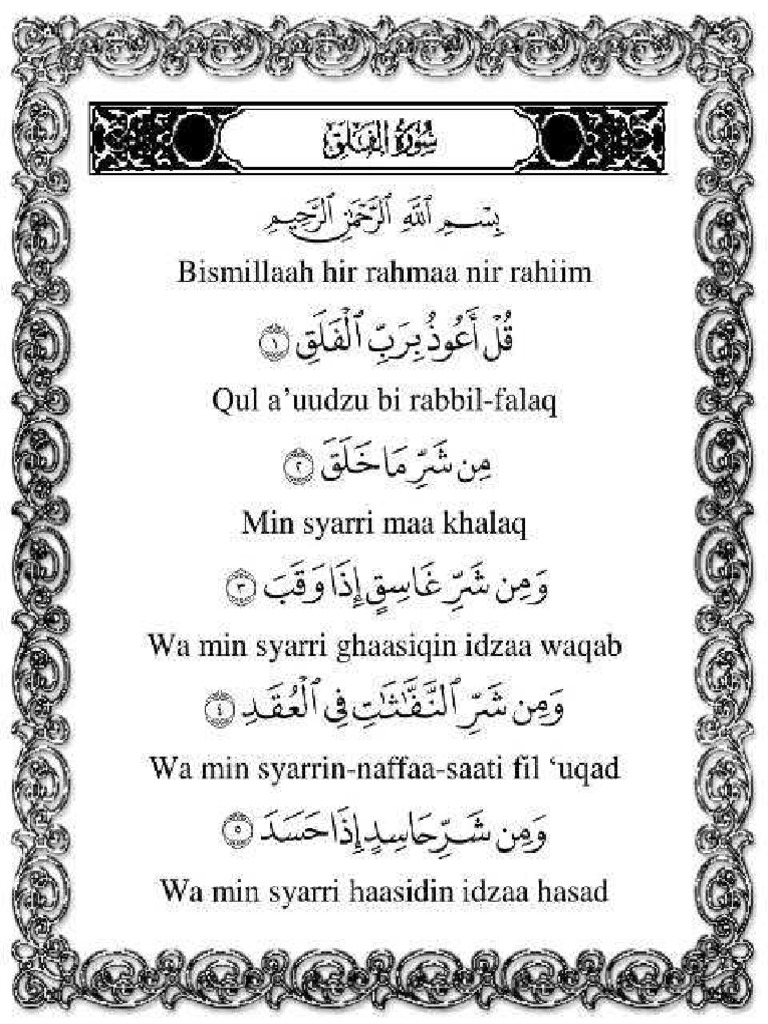 سُورَةُ الْفَلَقِ
بِسْمِ ٱللَّهِ ٱلرَّحْمَٰنِ ٱلرَّحِيمِ
Bismillaah hir rahmaa nir rahiim
قُلْ أَعُوذُ بِرَبِّ ٱلْفَلَقِ ١
Qul a’uudzu bi rabbil-falaq
مِن شَرِّ مَا خَلَقَ ٢
Min syarri maa khalaq
وَمِن شَرِّ غَاسِقٍ إِذَا وَقَبَ ٣
Wa min syarri ghaasiqin idzaa waqab
وَمِن شَرِّ ٱلنَّفَّٰثَٰتِ فِى ٱلْعُقَدِ ٤
Wa min syarrin-naffaa-saati fil ‘uqad
وَمِن شَرِّ حَاسِدٍ إِذَا حَسَدَ ٥
Wa min syarri haasidin idzaa hasad